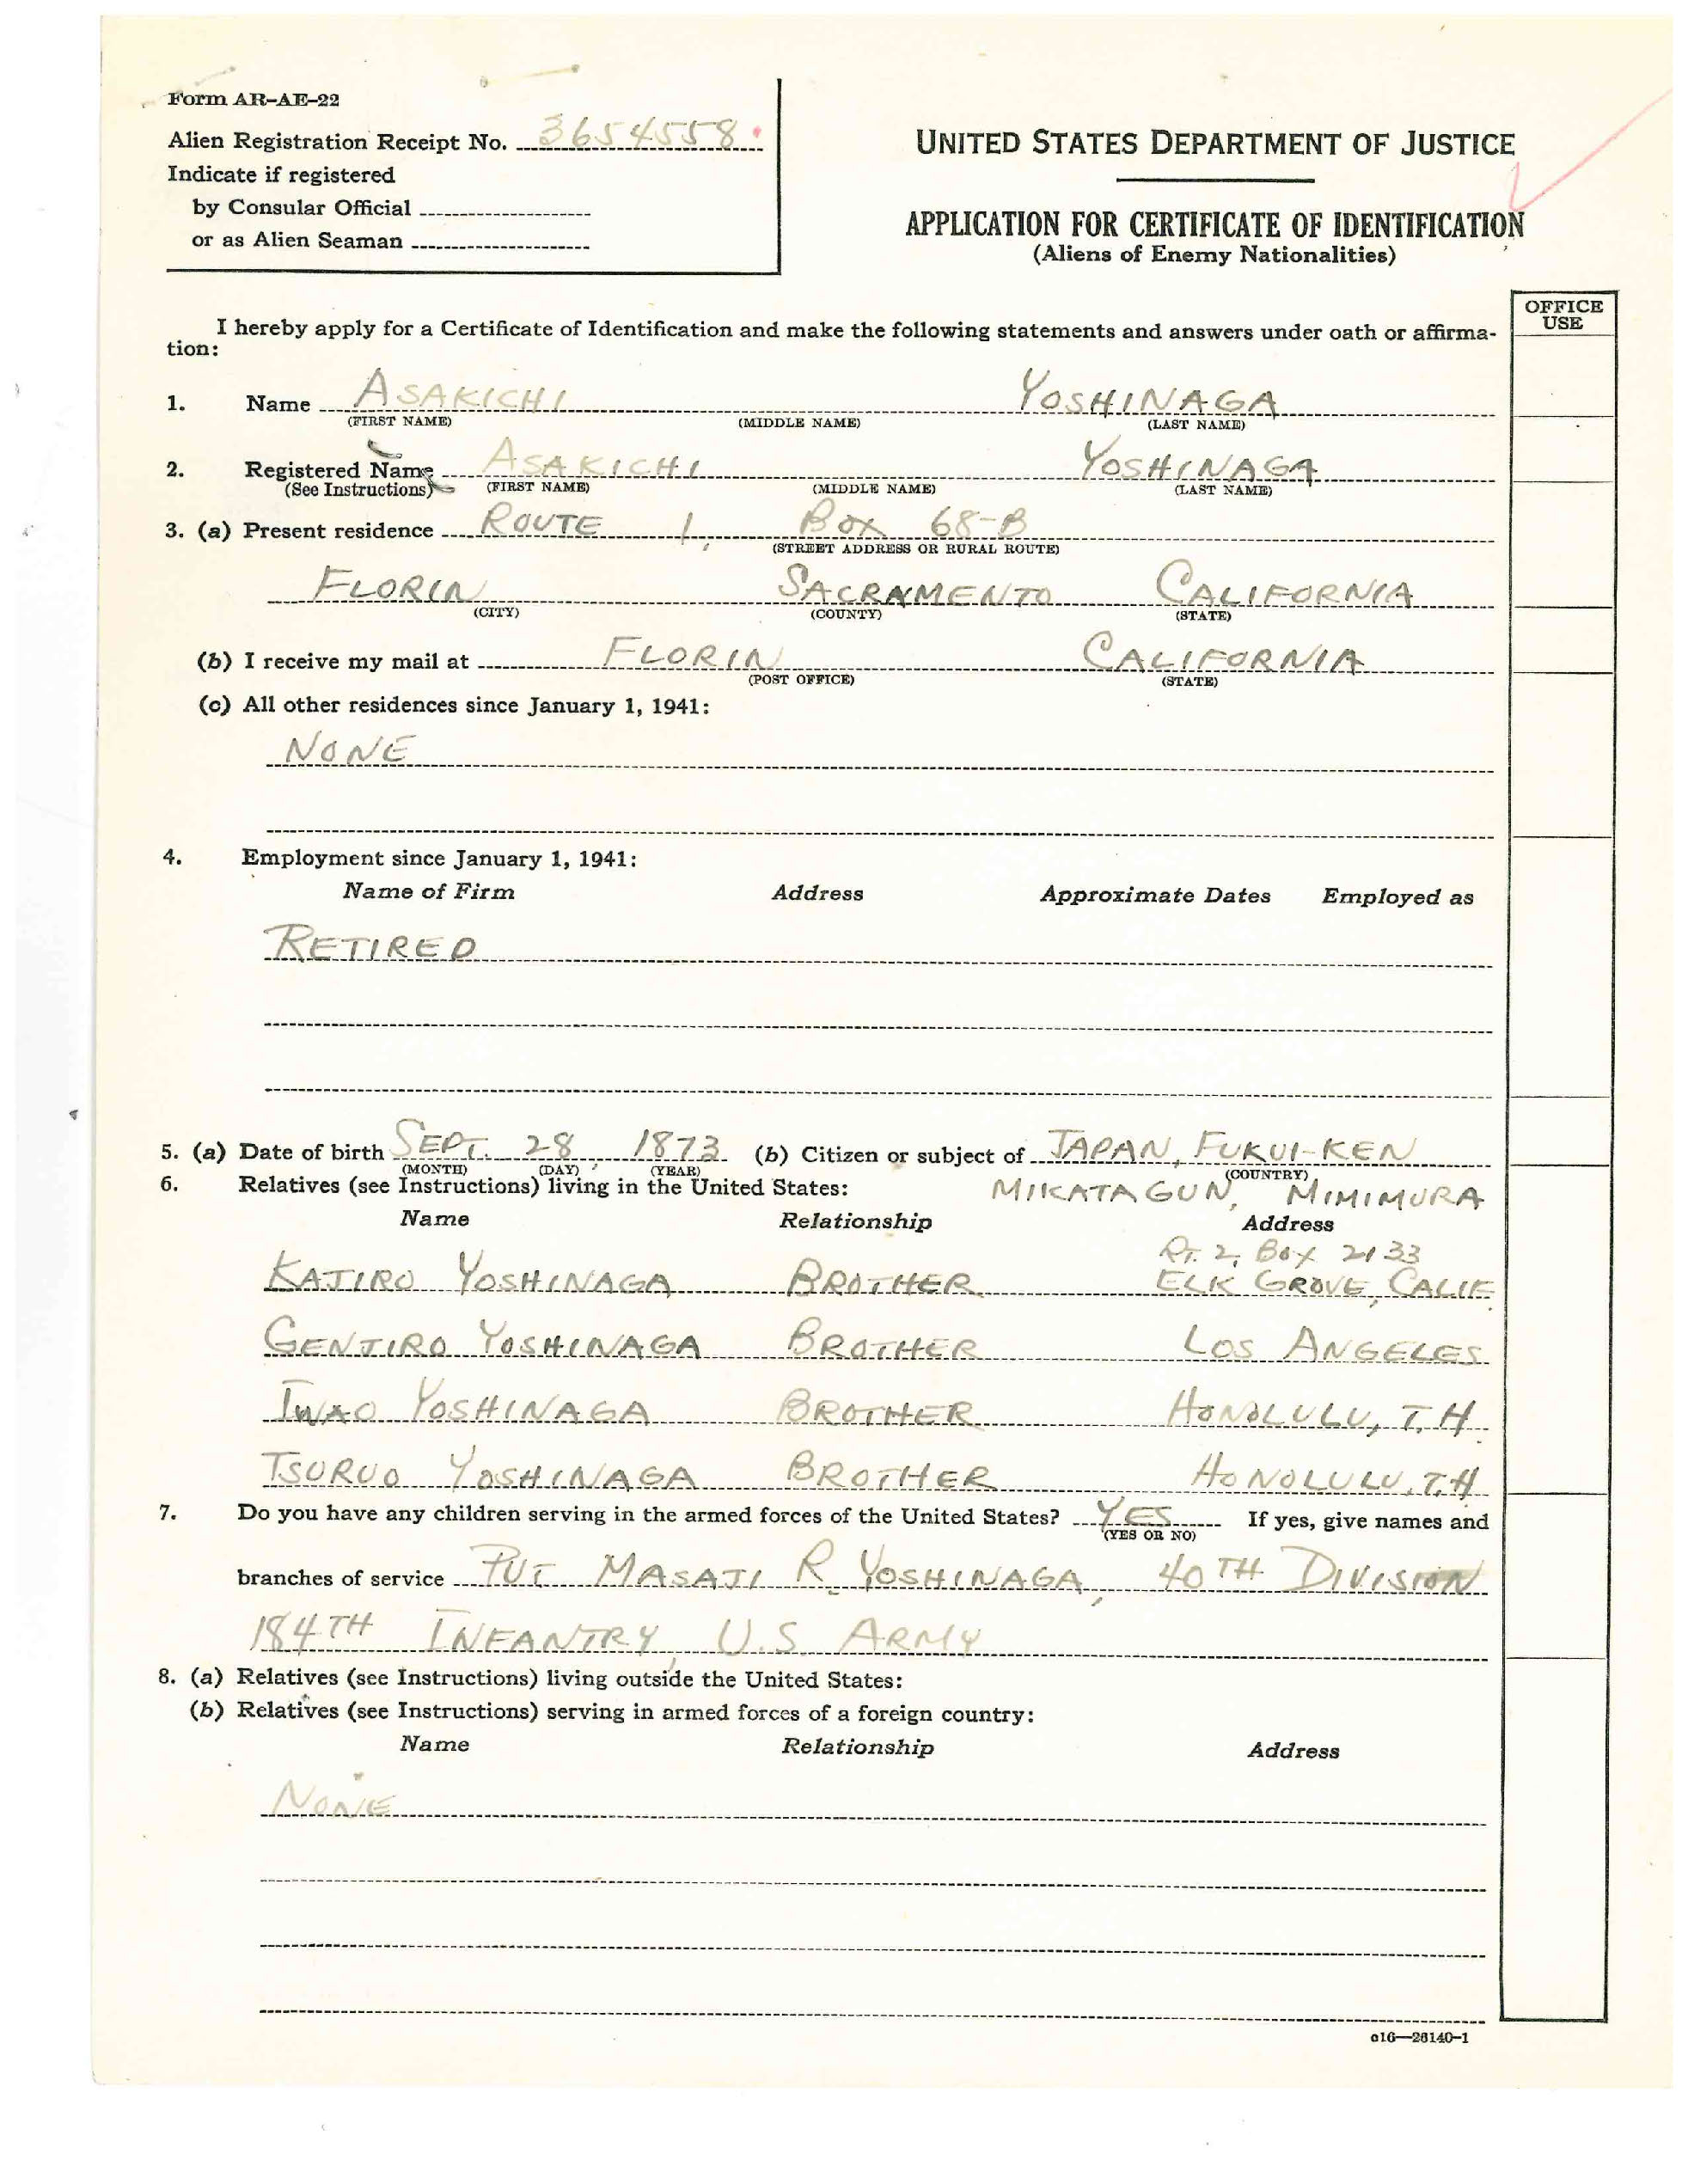 Form AR-AE-22
Alien Registration Receipt No. 3654558
Indicate if registered
by Consular Official
or as Alien Seaman
UNITED STATES DEPARTMENT OF JUSTICE
APPLICATION FOR CERTIFICATE OF IDENTIFICATION
(Aliens of Enemy Nationalities)
OFFICE
USE
I hereby apply for a Certificate of Identification and make the following statements and answers under oath or affirma-
tion:
1. Name ASAKICHI YOSHINAGA
(FIRST NAME) (MIDDLE NAME) (LAST NAME)
2. Registered Name ASAKICHI YOSHINAGA
(See Instructions) (FIRST NAME) (MIDDLE NAME) (LAST NAME)
3. (a) Present residence ROUTE 1, BOX 68-B
(STREET ADDRESS OR RURAL ROUTE)
FLORIN SACRAMENTO CALIFORNIA
(CITY) (COUNTY) (STATE)
(b) I receive my mail at FLORIN CALIFORNIA
(POST OFFICE) (STATE)
(c) All other residences since January 1, 1941:
NONE
4. Employment since January 1, 1941:
Name of Firm Address Approximate Dates Employed as
RETIRED
5. (a) Date of birth SEPT. 28, 1873 (b) Citizen or subject of JAPAN, FUKUI-KEN
(MONTH) (DAY) (YEAR) (COUNTRY)
6. Relatives (see Instructions) living in the United States: MIKATAGUN, MIMIMURA
Name Relationship Address
RT. 2, BOX 2133
KAJIRO YOSHINAGA BROTHER ELK GROVE, CALIF.
GENJIRO YOSHINAGA BROTHER LOS ANGELES
IWAO YOSHINAGA BROTHER HONOLULU, T.H.
TSURUO YOSHINAGA BROTHER HONOLULU, T.H.
7. Do you have any children serving in the armed forces of the United States? YES If yes, give names and
(YES OR NO)
branches of service PVT MASAJI R. YOSHINAGA, 40TH DIVISION
184TH INFANTRY, U.S. ARMY
8. (a) Relatives (see Instructions) living outside the United States:
(b) Relatives (see Instructions) serving in armed forces of a foreign country:
Name Relationship Address
NONE
o16—26140-1